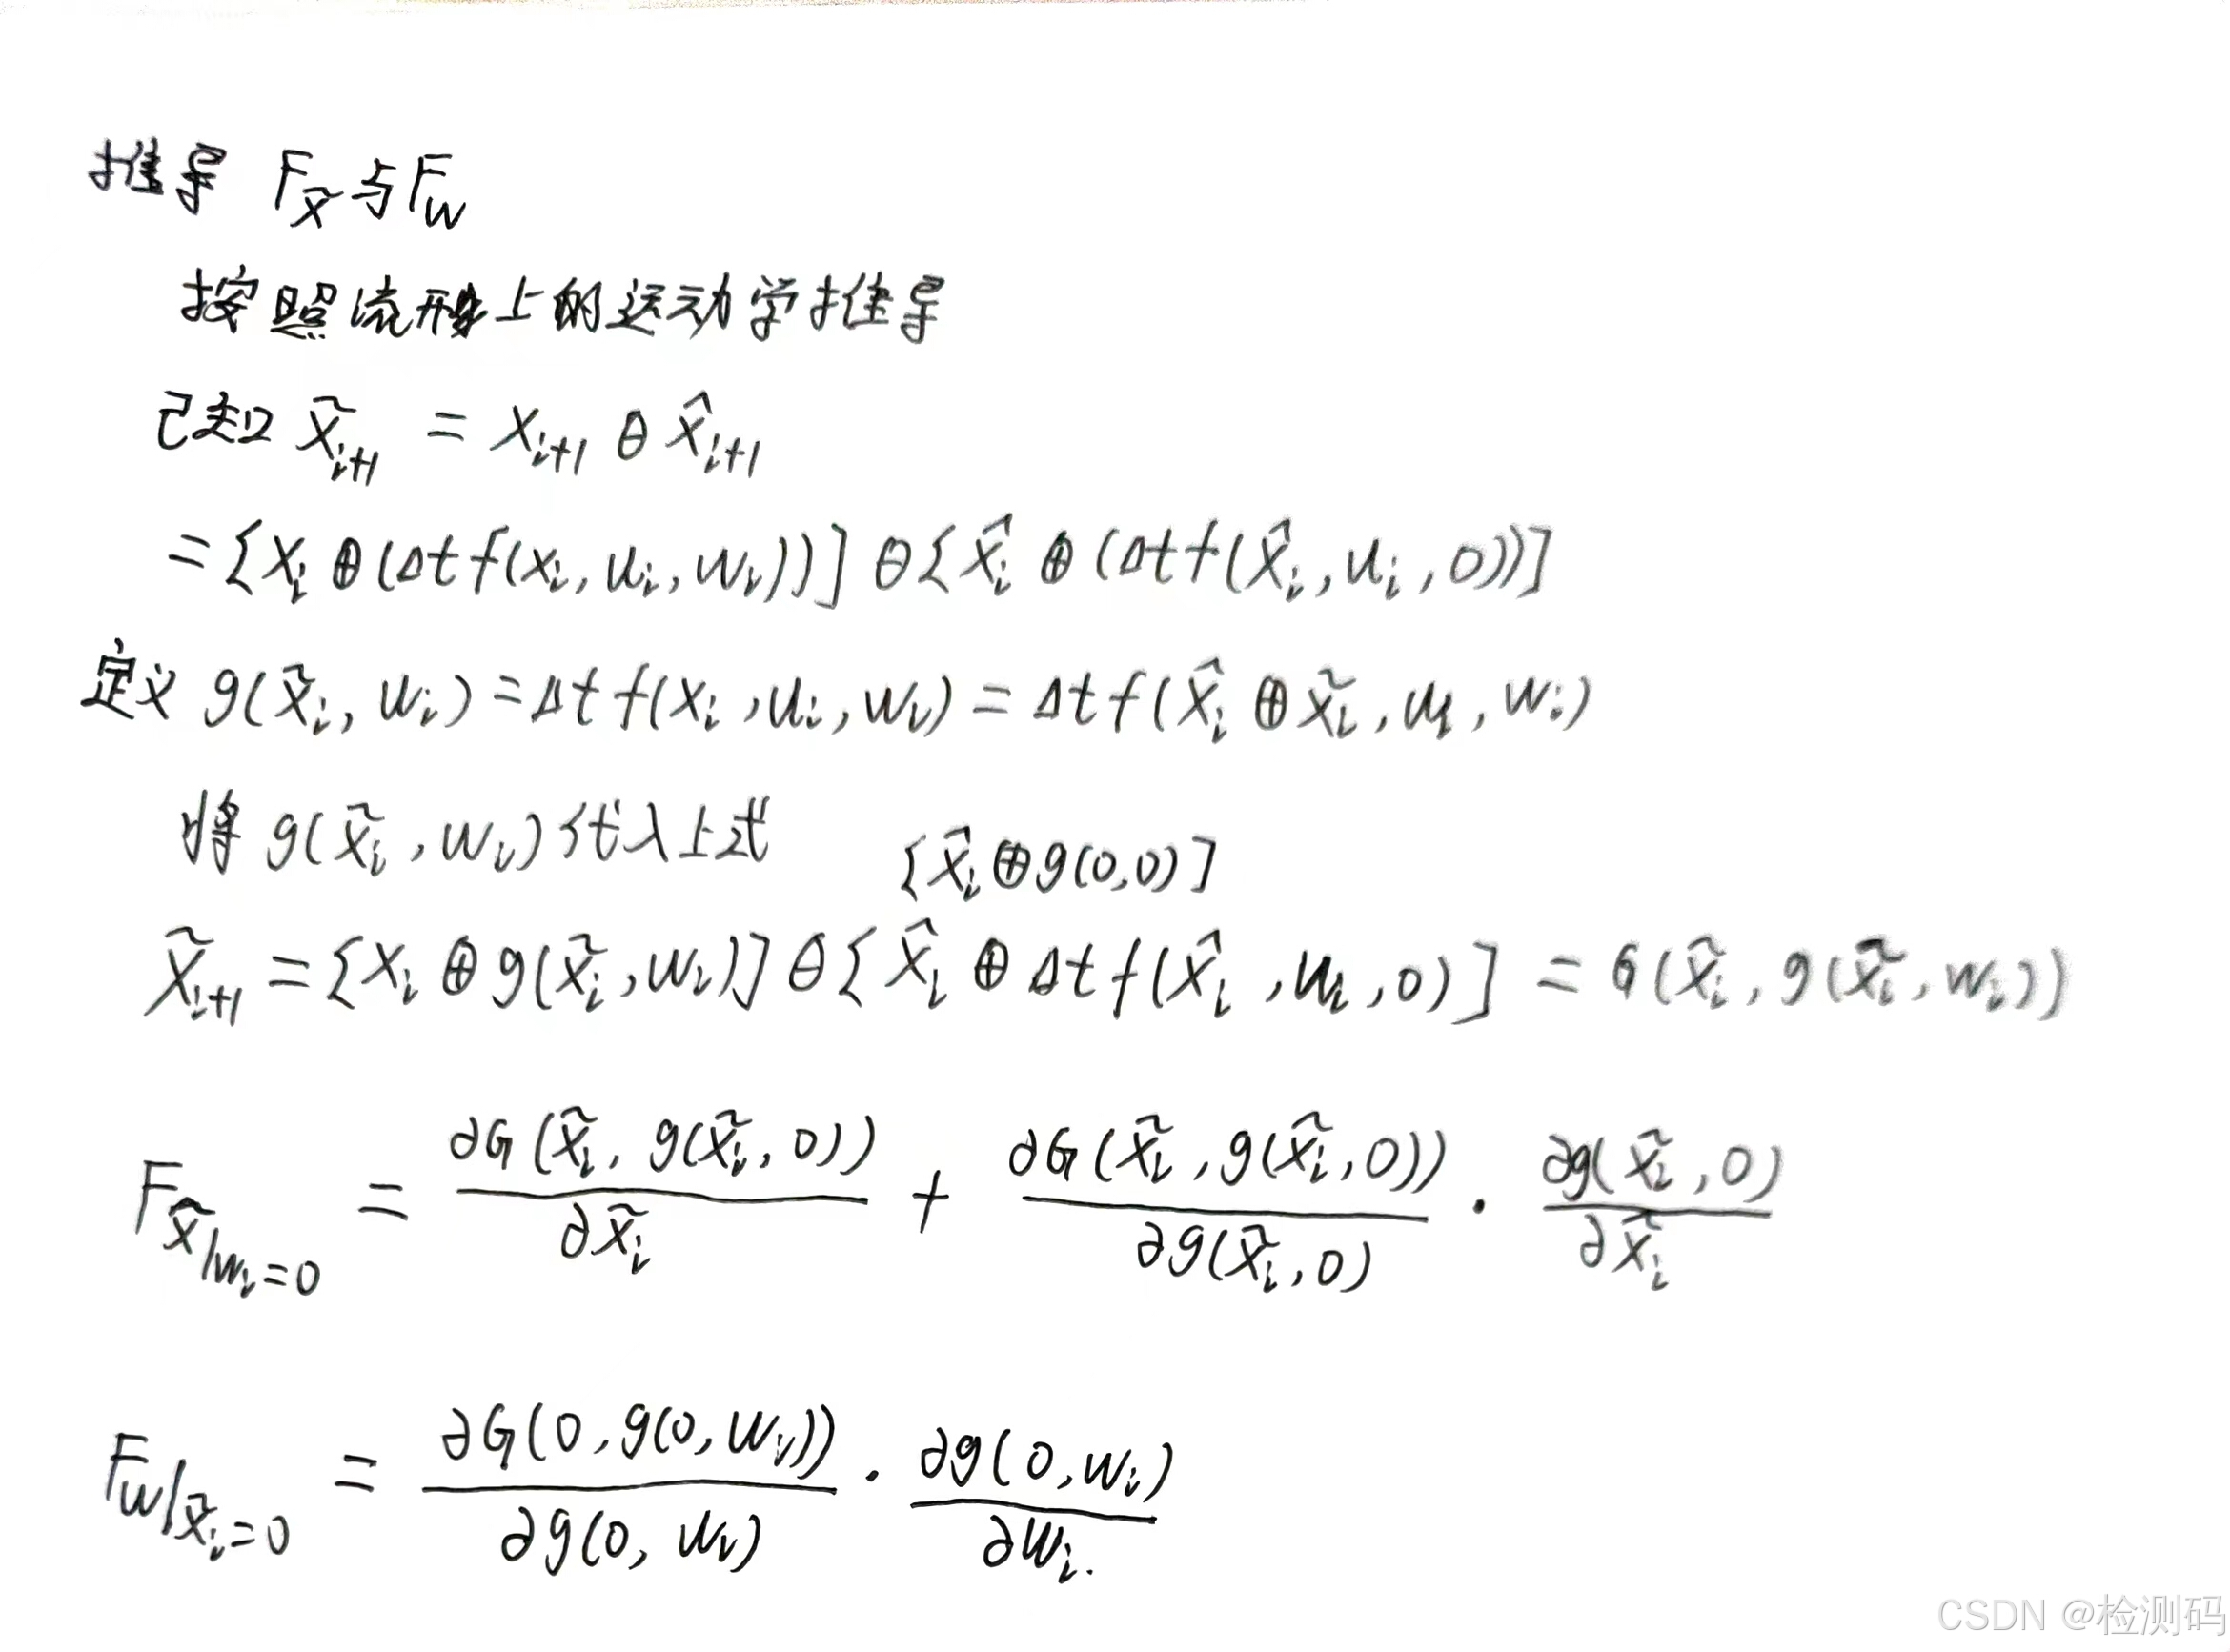 推导 F_x̃ 与 F_w
按照流形上的运动学推导
已知 x̃_{i+1} = x_{i+1} ⊖ x̂_{i+1}
= [x_i ⊕ (Δt f(x_i, u_i, w_i))] ⊖ [x̂_i ⊕ (Δt f(x̂_i, u_i, 0))]
定义 g(x̃_i, w_i) = Δt f(x_i, u_i, w_i) = Δt f(x̂_i ⊕ x̃_i, u_i, w_i)
将 g(x̃_i, w_i) 代入上式
[x̂_i ⊕ g(0,0)]
x̃_{i+1} = [x_i ⊕ g(x̃_i, w_i)] ⊖ [x̂_i ⊕ Δt f(x̂_i, u_i, 0)] = G(x̃_i, g(x̃_i, w_i))
F_{x̃|w_i=0} = ∂G(x̃_i, g(x̃_i, 0))/∂x̃_i + ∂G(x̃_i, g(x̃_i, 0))/∂g(x̃_i, 0) · ∂g(x̃_i, 0)/∂x̃_i
F_{w|x̃_i=0} = ∂G(0, g(0, w_i))/∂g(0, w_i) · ∂g(0, w_i)/∂w_i.
CSDN @检测码